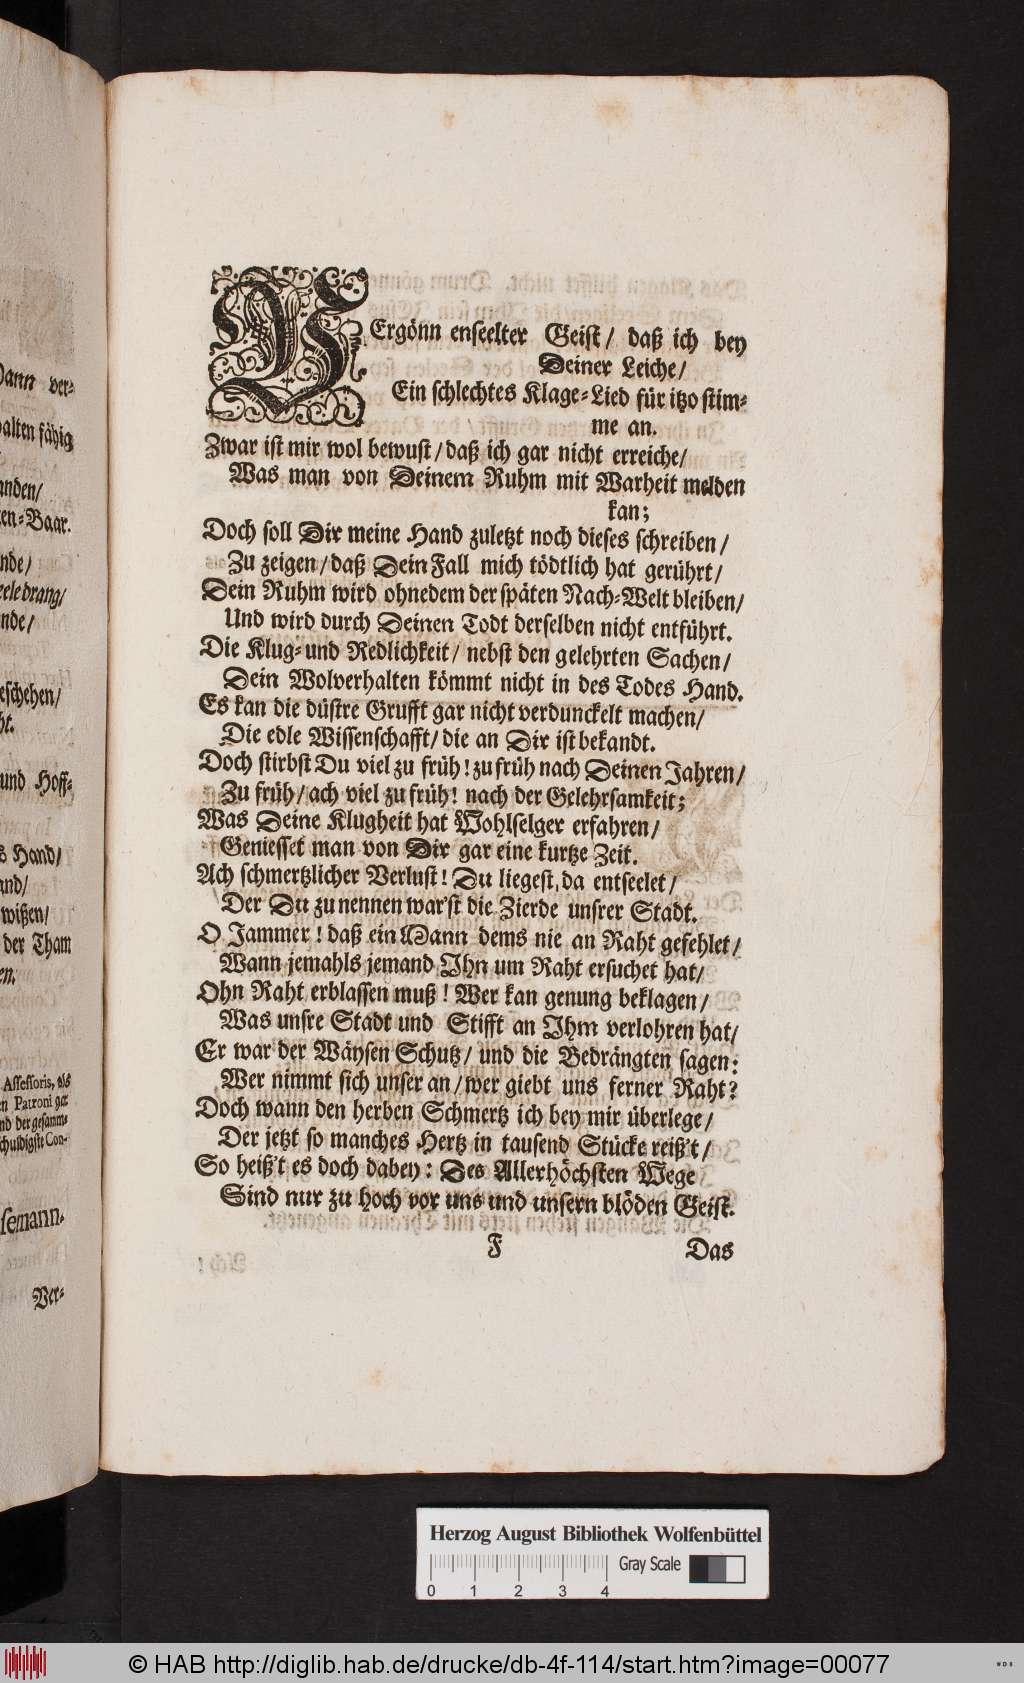 VErgönn enseelter Geist / daß ich bey
Deiner Leiche /
Ein schlechtes Klage-Lied für itzo stim-
me an.
Zwar ist mir wol bewust / daß ich gar nicht erreiche /
Was man von Deinem Ruhm mit Warheit melden
kan;
Doch soll Dir meine Hand zuletzt noch dieses schreiben /
Zu zeigen / daß Dein Fall mich tödtlich hat gerührt /
Dein Ruhm wird ohnedem der späten Nach-Welt bleiben /
Und wird durch Deinen Todt derselben nicht entführt.
Die Klug- und Redlichkeit / nebst den gelehrten Sachen /
Dein Wolverhalten kömmt nicht in des Todes Hand.
Es kan die düstre Grufft gar nicht verdunckelt machen /
Die edle Wissenschafft / die an Dir ist bekandt.
Doch stirbst Du viel zu früh! zu früh nach Deinen Jahren /
Zu früh / ach viel zu früh! nach der Gelehrsamkeit;
Was Deine Klugheit hat Wohlselger erfahren /
Geniesset man von Dir gar eine kurtze Zeit.
Ach schmertzlicher Verlust! Du liegest, da entseelet /
Der Du zu nennen war'st die Zierde unsrer Stadt.
O Jammer! daß ein Mann dems nie an Raht gefehlet /
Wann jemahls jemand Ihn um Raht ersuchet hat /
Ohn Raht erblassen muß! Wer kan genung beklagen /
Was unsre Stadt und Stifft an Ihm verlohren hat /
Er war der Wäysen Schutz / und die Bedrängten sagen:
Wer nimmt sich unser an / wer giebt uns ferner Raht?
Doch wann den herben Schmertz ich bey mir überlege /
Der jetzt so manches Hertz in tausend Stücke reiß't /
So heiß't es doch dabey: Des Allerhöchsten Wege
Sind nur zu hoch vor uns und unsern blöden Geist.
F
Das
Dann ver-
alten fähig
anden /
en-Baar.
nde /
eele drang /
nde /
eschehen /
ht.
und Hoff-
s Hand /
and /
wißen /
der Tham
en.
Assessoris, als
en Patroni gar
nd der gesamm-
schuldigste Con-
semann.
Ver-
Herzog August Bibliothek Wolfenbüttel
Gray Scale
0 1 2 3 4
© HAB http://diglib.hab.de/drucke/db-4f-114/start.htm?image=00077